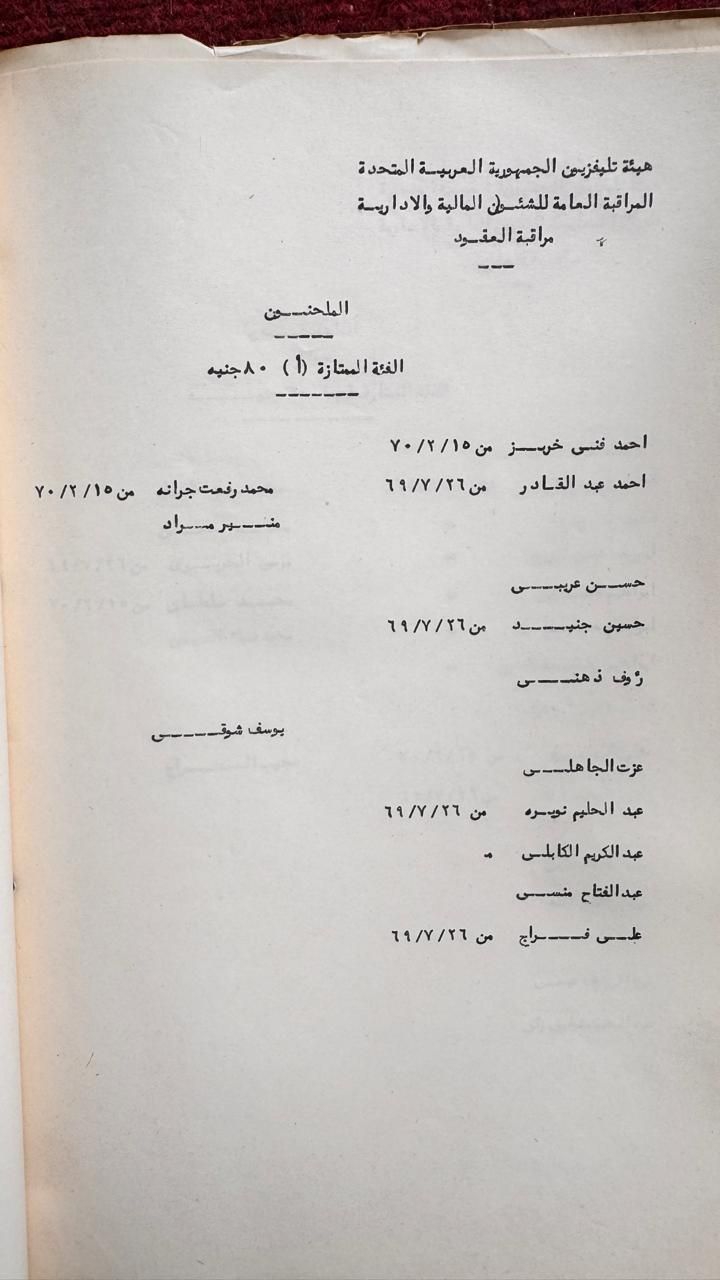 هيئة تليفزيون الجمهورية العربية المتحدة
المراقبة العامة للشئون المالية والادارية
مراقبة العقود
الملحنون
الفئة الممتازة (أ) ٨٠ جنيه
احمد فنى خريز من ٧٠/٢/١٥
احمد عبد القادر من ٦٩/٧/٢٦ محمد رفعت جرانه من ٧٠/٢/١٥
منير مراد
حسن عريبى
حسين جنيد من ٦٩/٧/٢٦
رؤوف ذهنى
يوسف شوقى
عزت الجاهلى
عبد الحليم نويره من ٦٩/٧/٢٦
عبد الكريم الكابلى
عبد الفتاح منسى
على فراج من ٦٩/٧/٢٦